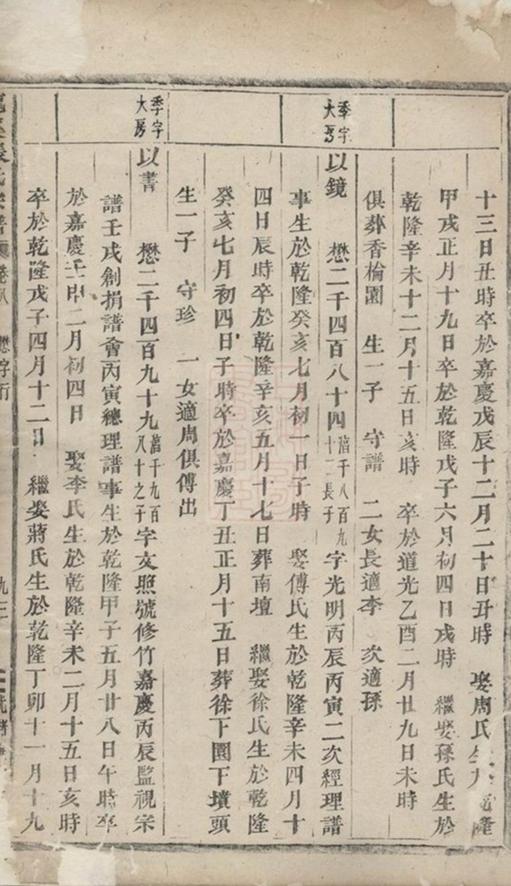 十三日丑時卒於嘉慶戊辰十二月二十日丑時 娶周氏生 乾隆
甲戌正月十九日卒於乾隆戊子六月初四日戌時 繼娶孫氏生於
乾隆辛未十二月十五日亥時 卒於道光乙酉二月廿九日未時
俱葬香棆園 生一子 守譜 二女長適李 次適孫
季字大房 以鏡 懋二千四百八十四 萬千八百九十二長子 字光明丙辰丙寅二次經理譜
事生於乾隆癸亥七月初一日子時 娶傅氏生於乾隆辛未四月十
四日辰時卒於乾隆辛亥五月十七日葬南壇 繼娶徐氏生於乾隆
癸亥七月初四日子時卒於嘉慶丁丑正月十五日葬徐下園下墳頭
生一子 守珍 一女適周俱傅出
季字大房 以書 懋二千四百九十九 萬千九百八十之子 字文照號修竹嘉慶丙辰監視宗
譜壬戌創捐譜會丙寅總理譜事生於乾隆甲子五月廿八日午時卒
於嘉慶壬申二月初四日 娶李氏生於乾隆辛未二月十五日亥時
卒於乾隆戊子四月十二日 繼娶蔣氏生於乾隆丁卯十一月十九
氏宗譜 卷八 懋字行 九三